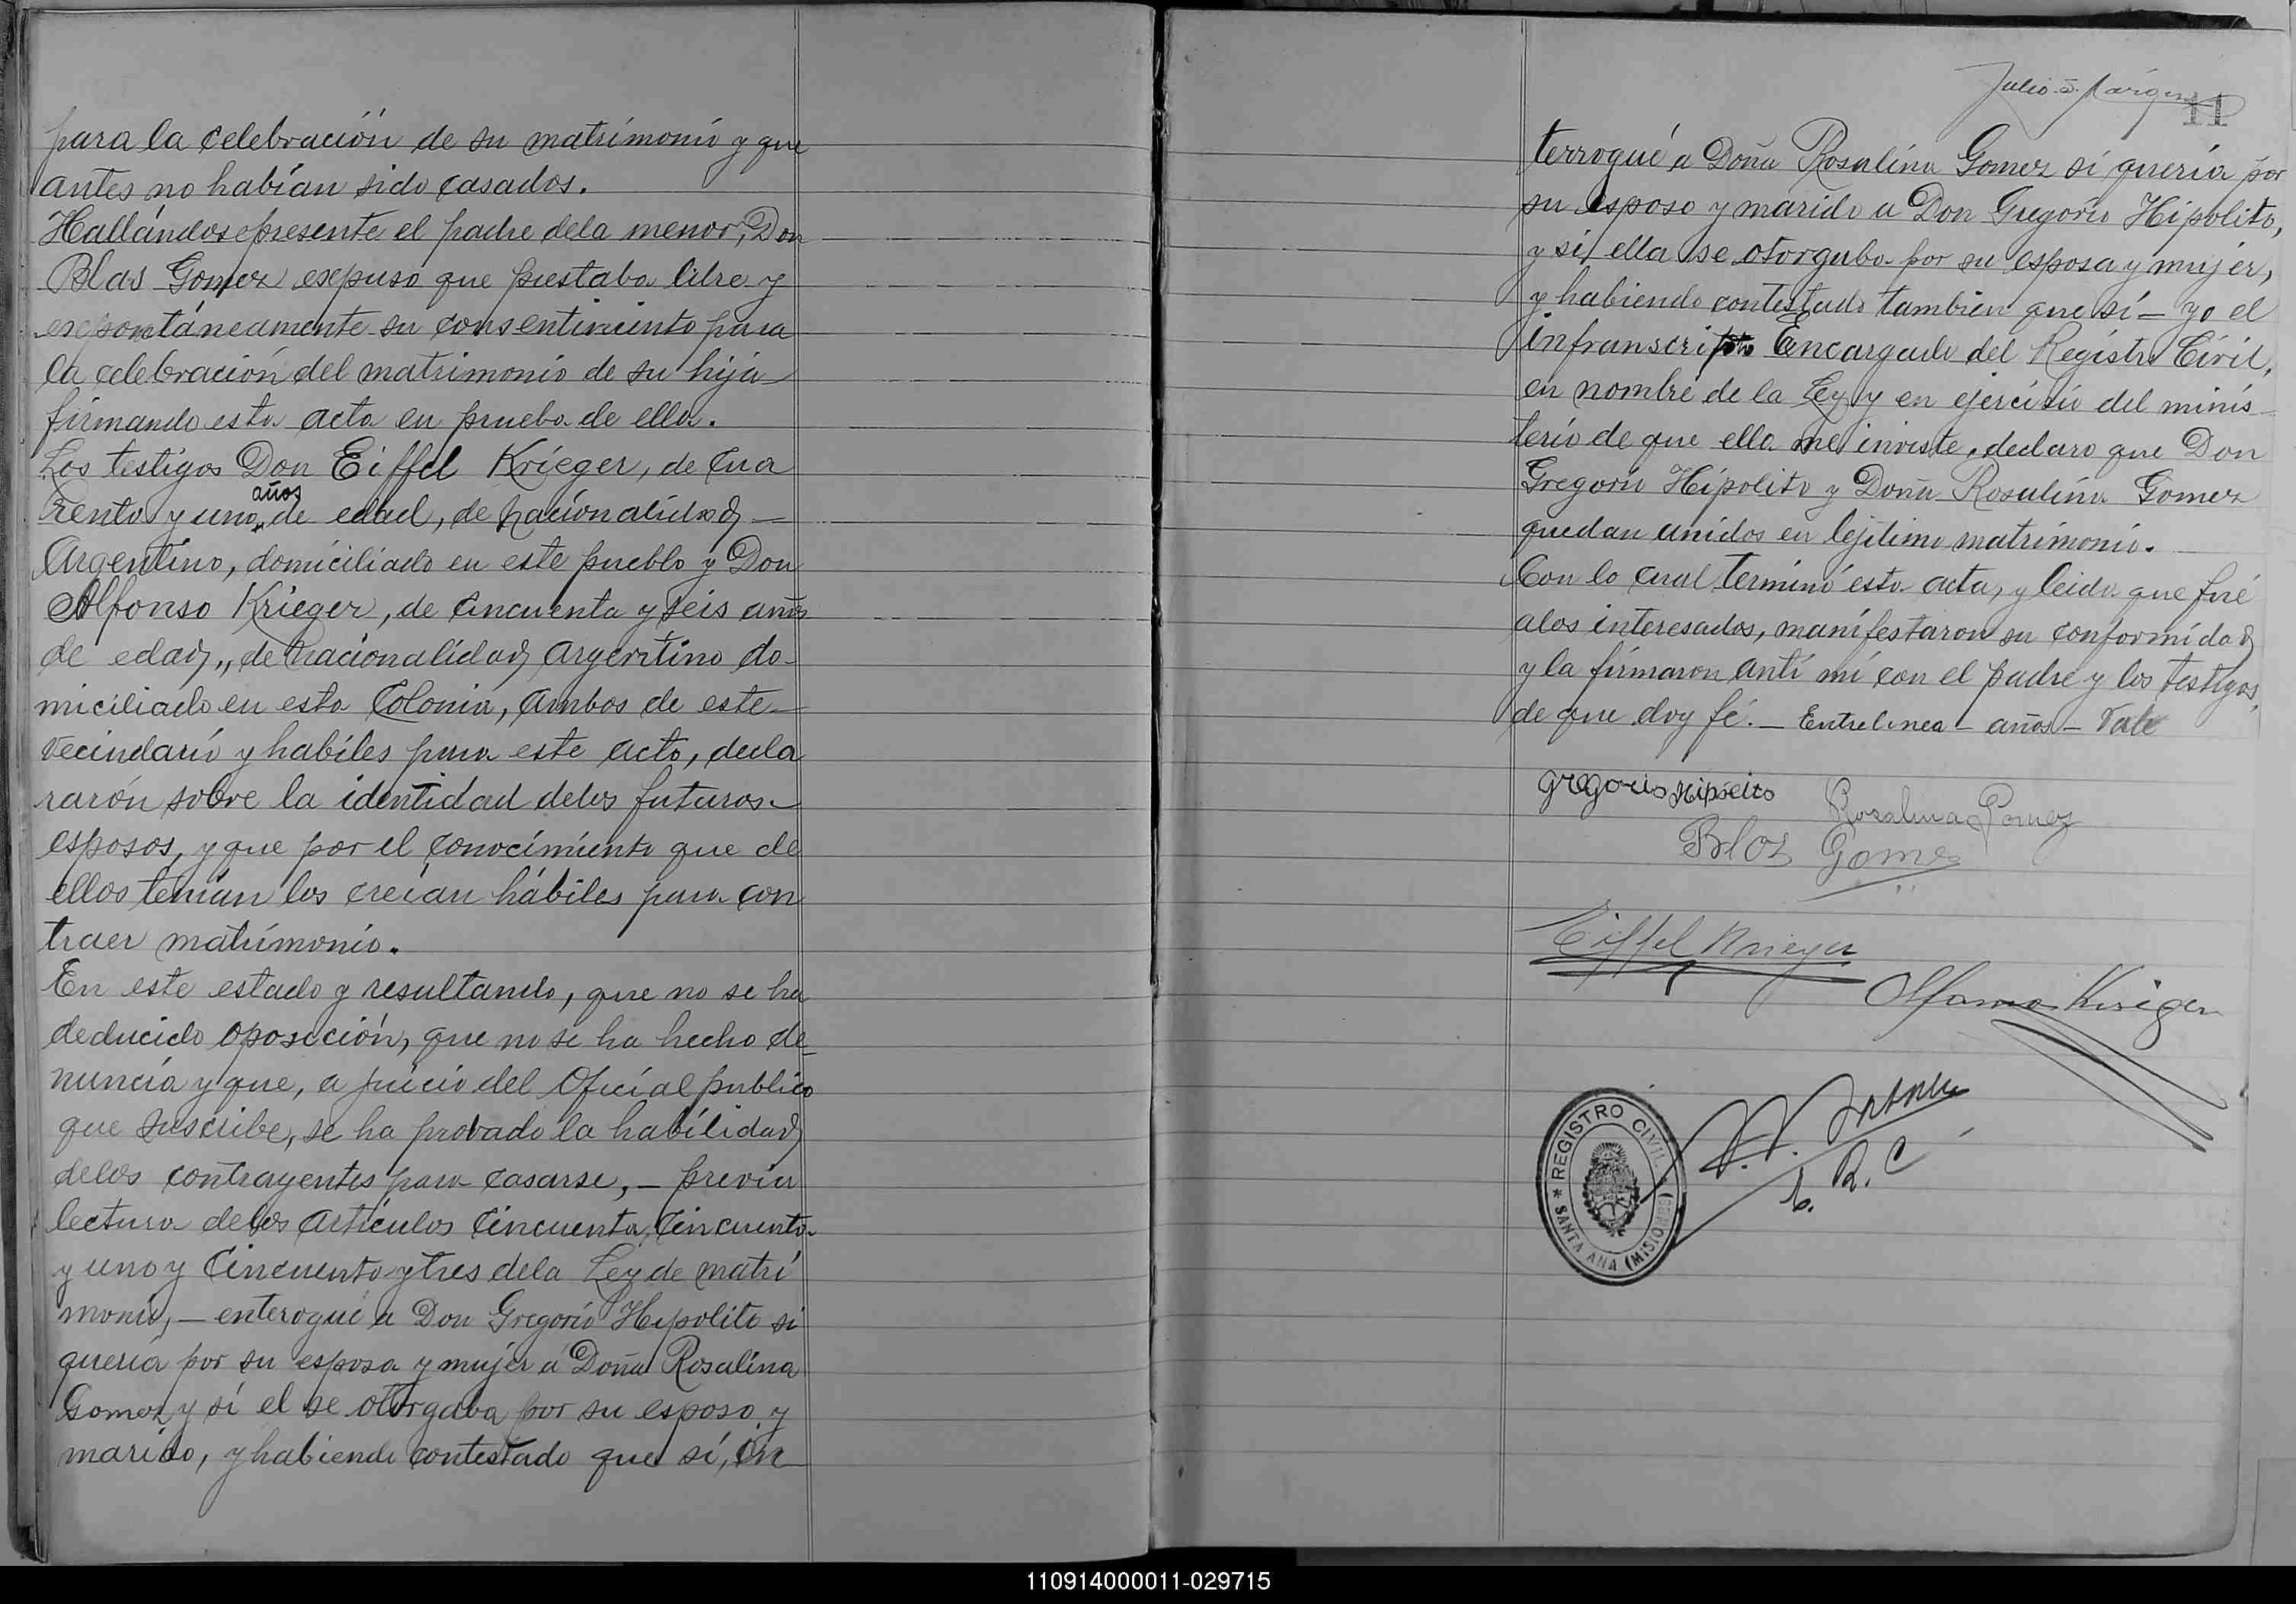 para la celebración de su matrimonio y que
antes no habían sido casados.
Hallándose presente el padre dela menor, Don
Blas Gomez expuso que prestaba libre y
expontáneamente su consentimiento para
la celebración del matrimonio de su hija
firmando esta acta en prueba de ella.
Los testigos Don Eiffel Krieger, de cua
renta y uno años de edad, de nacionalidad —
Argentino, domiciliado en este pueblo y Don
Alfonso Krieger, de cincuenta y seis años
de edad,, de nacionalidad argentino do-
miciliado en esta Colonia, ambos de este
vecindario y habiles para este acto, decla
rarón sobre la identidad delos futuros
esposos, y que por el conocimiento que de
ellos tenían los creían hábiles para con
traer matrimonio.
En este estado y resultando, que no se ha
deducido oposición, que no se ha hecho de-
nuncia y que, a juicio del Oficial publico
que suscribe, se ha provado la habilidad
delos contrayentes para casarse, — previa
lectura delos articulos cincuenta, cincuenta
y uno y Cincuenta y tres dela Ley de matri
monio, — enterogué a Don Gregorio Hipolito si
quería por su esposa y mujer a Doña Rosalina
Gomez y si el se otorgaba por su esposo y
marido, y habiendo contestado que sí, in
11
terrogué a Doña Rosalina Gomez si quería por
su esposo y marido a Don Gregorio Hipolito,
y si ella se otorgaba por su esposa y mujer,
y habiendo contestado tambien que sí — yo el
infranscripto Encargado del Registro Civil,
en nombre de la Ley y en ejercisio del minis-
terio de que ella me inviste, declaro que Don
Gregorio Hipolito y Doña Rosalina Gomez
quedan unidos en lejitimo matrimonio.
Con lo cual terminó esta acta, y leida que fué
alos interesados, manifestaron su conformidad
y la firmaron anti mí con el padre y los testigos,
de que doy fé. — Entrelinea — años — Vale
Gregorio Hipolito
Rosalina Gomez
Blas Gomez
Eiffel Krieger
Alfonso Krieger
E. R. C
REGISTRO CIVIL
* SANTA ANA (MISIONES)
110914000011-029715